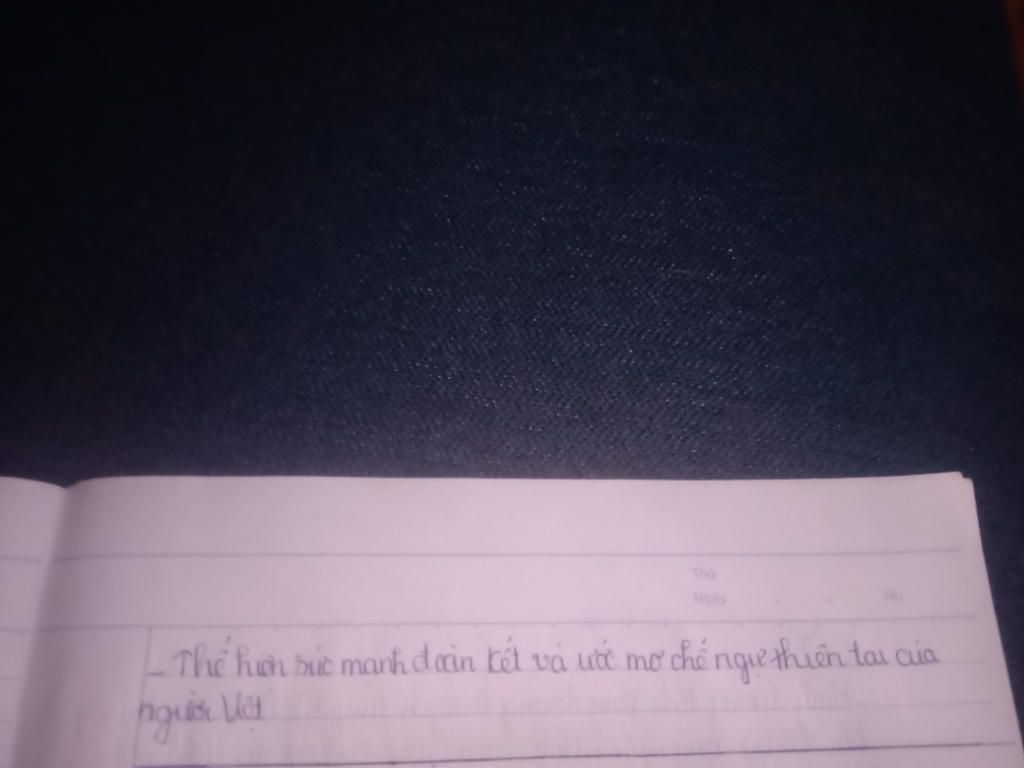 Thứ
Ngày . . No.
– Thể hiện sức mạnh đoàn kết và ước mơ chế ngự thiên tai của
người Việt